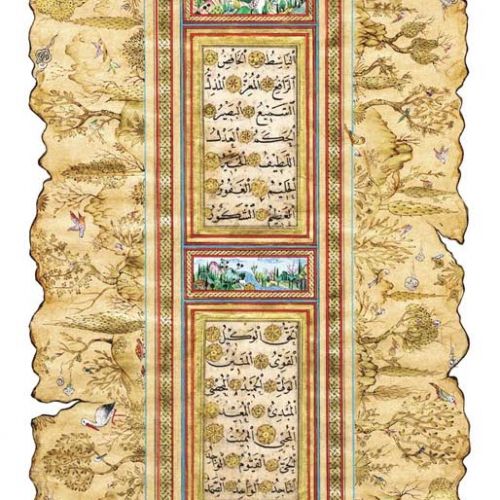 الباسط الخافض
الرافع المعز المذل
السميع البصير
الحكم العدل
اللطيف الخبير
الحليم الغفور
العظيم الشكور
الحق الوكيل
القوى المتين
الولى الحميد المحصى
المبدئ المعيد
المحيى المميت
الحى القيوم الواجد
الماجد الواحد الصمد